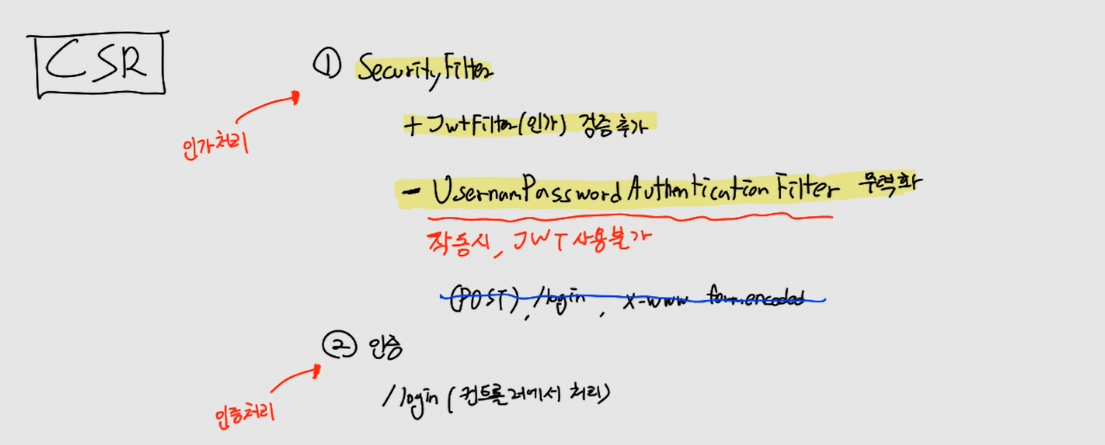 CSR
① SecurityFilter
인가처리
+ JwtFilter(인가) 검증 추가
- UsernamPasswordAuthenticationFilter 무력화
작동시, JWT 사용불가
(POST), /login, x-www form.encoded
② 인증
인증처리
/login (컨트롤러에서 처리)